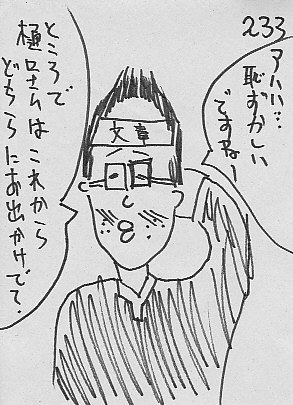 233
アハハ…
恥ずかしい
ですねー
文章
ところで
樋口さんはこれから
どちらにお出かけでて.